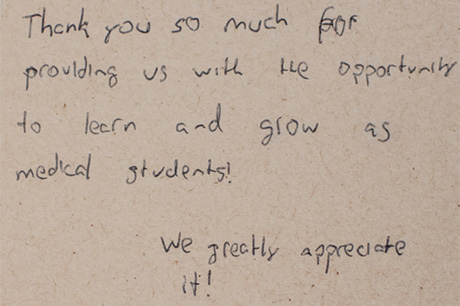 Thank you so much for
providing us with the opportunity
to learn and grow as
medical students!
We greatly appreciate
it!